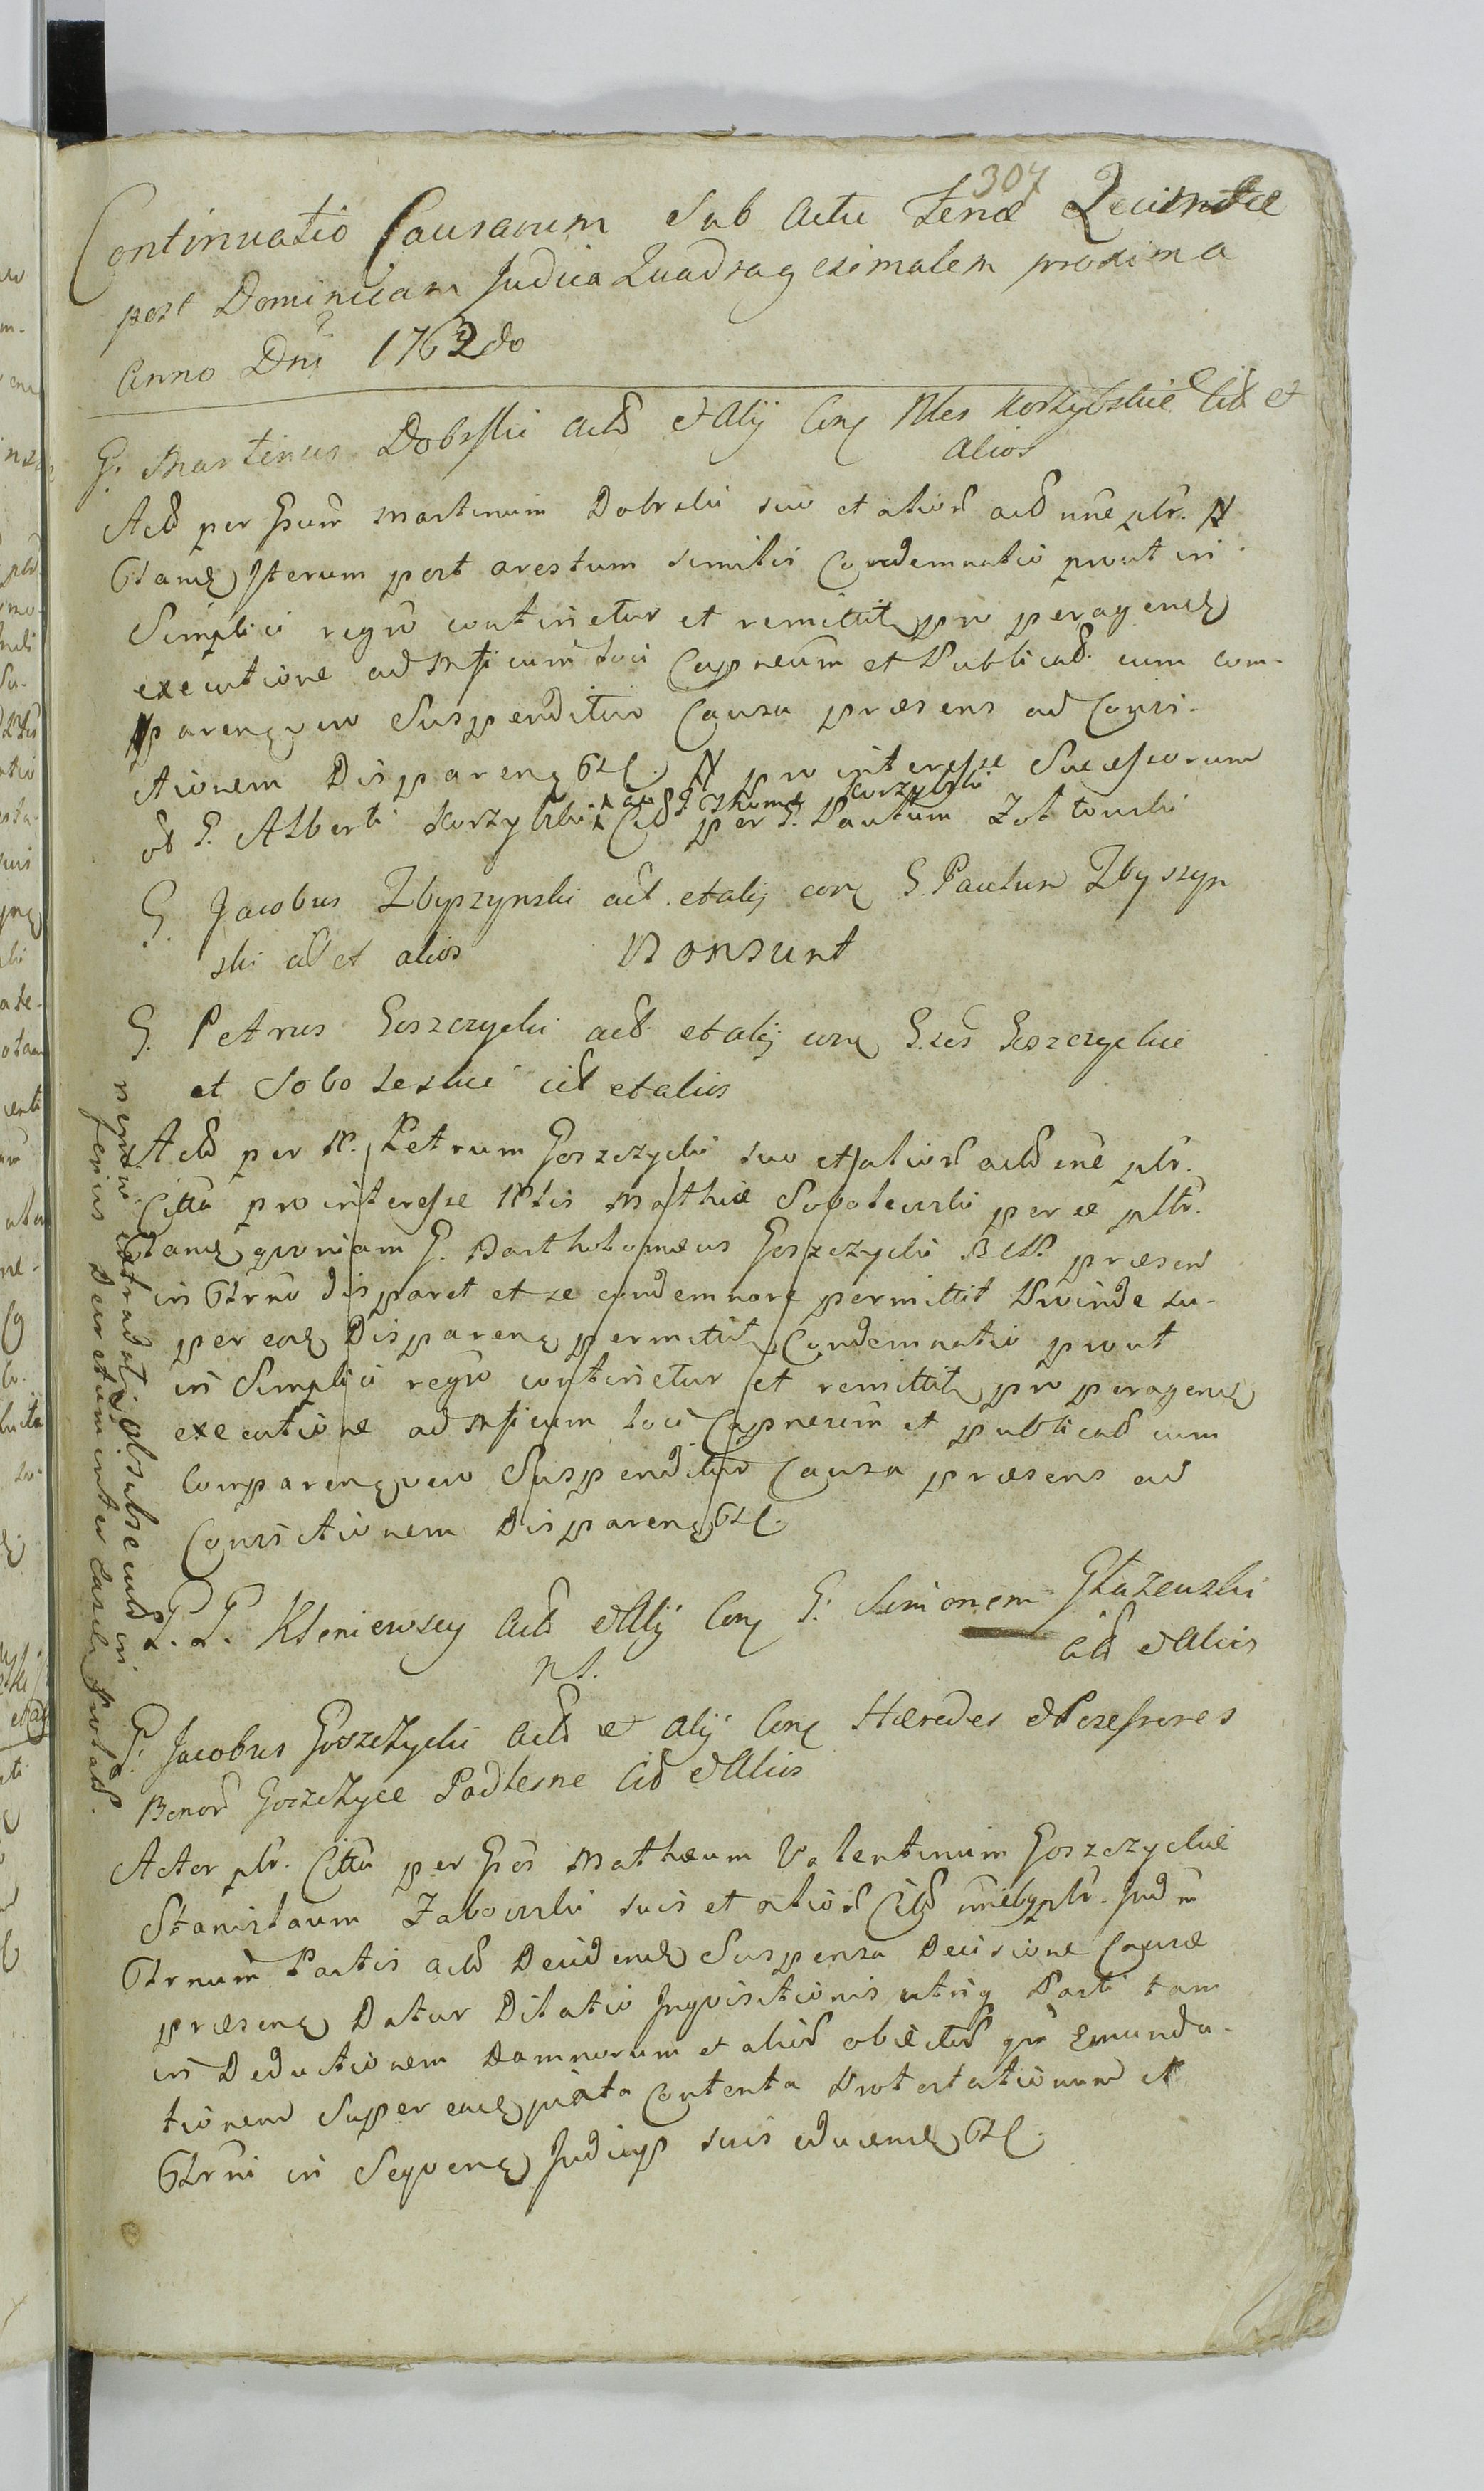 307
Continuatio Causarum Sub Actu Feriæ Quintæ
post Dominicam Judica Quadragesimalem proxima
Anno Dni 1762do
G. Martinus Dobrski Act et Alij Con Nles Korzybskie Cit et
alios
Act per Gsum Martinum Dobrski suo et alior act nne plr. N
Iterum post arestum similis Condemnatio prout in
Simplici regro continetur et remittit pro peragen
executione ad Officium loci Capneum et Publicat. cum com-
paren vero Suspenditur Causa præsens ad Convi-
ctionem Disparen N pro interesse Successorum
od G. Alberti Korzybski ac G. Thomæ Korzybski
Cit per G. Paulum Zoltowski
G. Jacobus Zbyszynski act. et alij con G. Paulum Zbyszyn
ski cit et alios Non sunt
G. Petrus Goszczycki act. et alij con G.sos Goszczyckie
et Soboleskie cit et alios
Act per N. Petrum Goszczycki suo et alior act nne plr.
Citta pro interesse Nlis Mathiæ Sobolewski per se plr.
quoniam G. Bartholomæus Goszczycki præsen
in Gtrno disparet et se condemnare permittit Proinde su-
per eon Disparen permittit Condemnatio prout
in Simplici regro continetur et remittit pro peragen
executione ad Officium loci Capneum et publicat cum
Comparen vero Suspenditur Causa præsens ad
Convictionem Disparen
G. G. Kleniewscy Act et Alij Con G. Simonem Glazewski
Cit et Alios
n s.
G. Jacobus Goszczycki Act et Alij Con Hæredes et Possessores
Bonor Goszczyce Podlesne Cit et Alios
Actor plr. Citta per Gsos Mathæum Valentinum Goszczyckie
Stanislaum Zabowski suis et alior Cit plr. Judm
Gtrnum Partis act Deciden Suspensa Decisione Causæ
præsen Datur Dilatio Inquisitionis utriq Parti tam
in Deductionem Damnorum et alior obiector qm Emunda-
tionem Super eaiuxta Contenta Protestationum et
Gtrni in Seqven Judicys suis educen
nemini extradat subsecut in
ferius Decretum inter easd